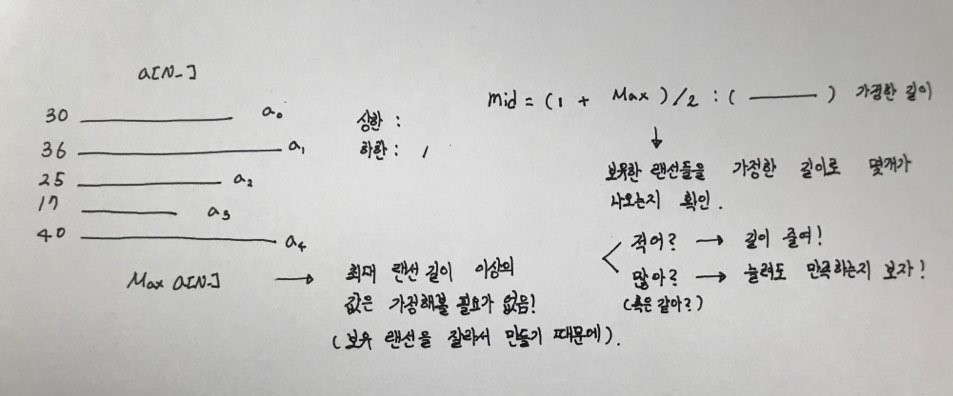 a[N-]
30 a0
36 a1
25 a2
17 a3
40 a4
Max a[N-] → 최대 랜선 길이 이상의
값은 가정해볼 필요가 없음!
(보유 랜선을 잘라서 만들기 때문에).
상한 :
하한 : 1
mid = (1 + Max)/2 : ( ——— ) 가정한 길이
↓
보유한 랜선들을 가정한 길이로 몇개가
나오는지 확인.
적어? → 길이 줄여!
많아? → 늘려도 만족하는지 보자!
(혹은 같아?)